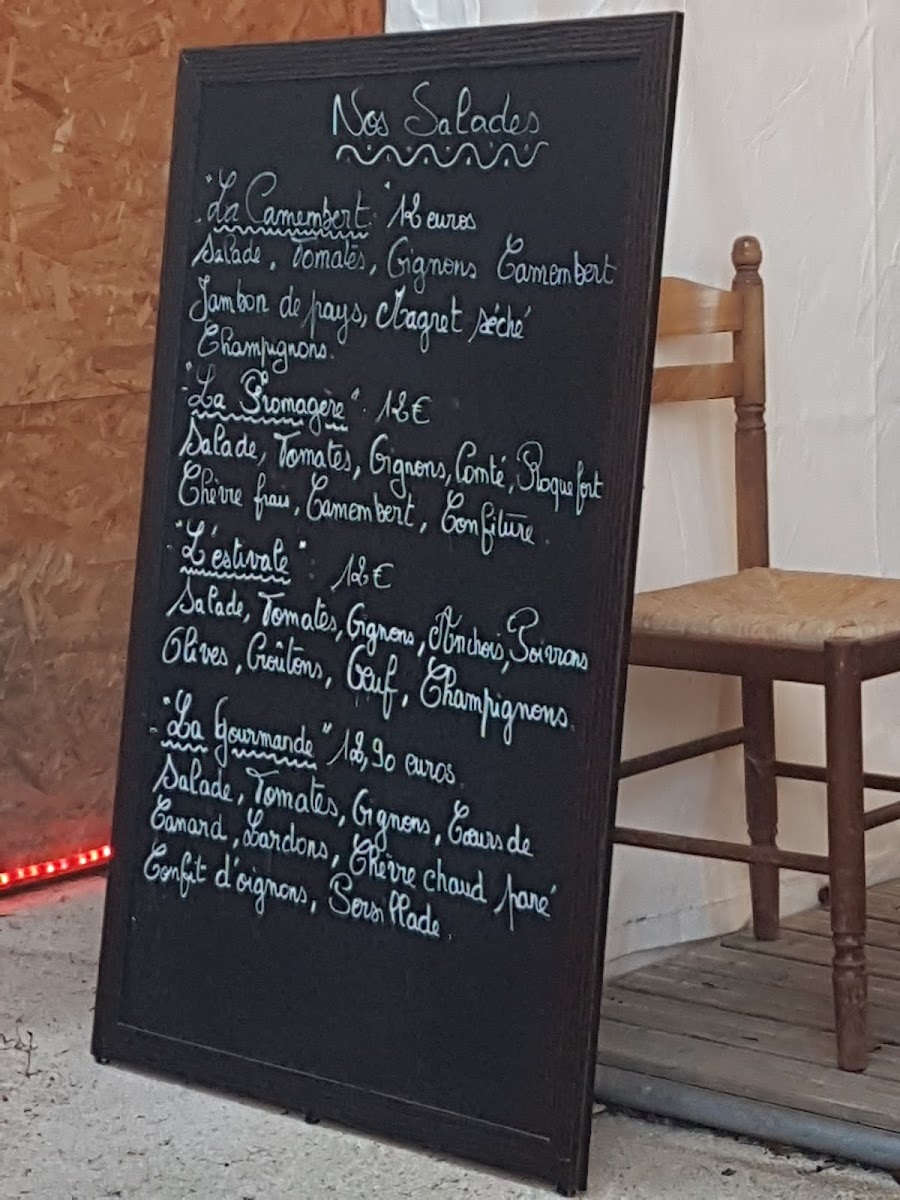 Nos Salades
"La Camembert" 12 euros
Salade, Tomates, Oignons Camembert
Jambon de pays, Magret séché
Champignons.
"La Fromagère" 12€
Salade, Tomates, Oignons, Comté, Roquefort
Chèvre frais, Camembert, Confiture.
"L'éstivale" : 12€
Salade, Tomates, Oignons, Anchois, Poivrons
Olives, Croûtons, Oeuf, Champignons.
"La Gourmande" 12,90 euros.
Salade, Tomates, Oignons, Coeurs de
Canard, Lardons, Chèvre chaud pané
Confit d'oignons, Persillade.